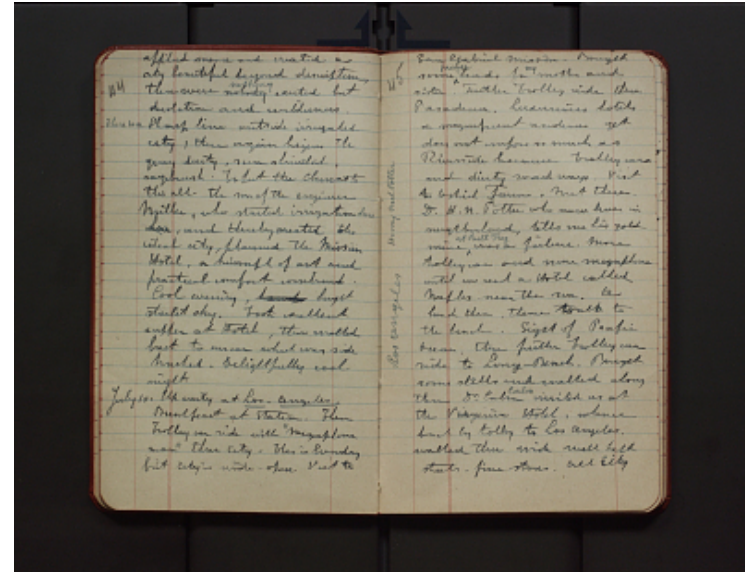 114
applied once and created a
city beautiful beyond description,
there were nothing nobody wanted but
desolation and wilderness.
Sharp line outside irrigated
city, there virgin begins the
gray dusty, sun shriveled
sagebrush. To put the character
the all. The son of the engineer
Miller, who started irrigation here
and thereby created the
ideal city, planned the Mission
Hotel, a triumph of art and
practical comfort combined.
Cool evening, bright
starlit sky. Took excellent
supper at Hotel, then walked
back to train which was side
tracked. Delightfully cool
night
July 10. Up early at Los-Angeles.
Breakfast at Station. Then
Trolley car ride with "Megaphone
man" thru city. This is Sunday
but city is wide-open. Visit to
115
San Gabriel Mission. Bought
some beads for my mother and
sister. Further Trolley ride thru
Pasadena. Luxurious hotels
a magnificent audience yet
does not impose so much as
Riverside because trolley cars
and dirty road ways. Visit
to Ostrich Farm. Met there
D. H. H. Potter who now lives in
neighborhood, tells me his gold
mine was a failure. More
trolley car and more megaphone
until we reach a Hotel called
Naples near the sea. We
lunch there. Then to
the beach. Sight of Pacific
Ocean, then further Trolley car
ride to Long-Beach. Bought
some shells and walked along
then Dr. invited us at
the Virginia Hotel, whence
back by trolley to Los Angeles.
walked thru wide well kept
streets - fine stores. and Elks
Los Angeles
Potter